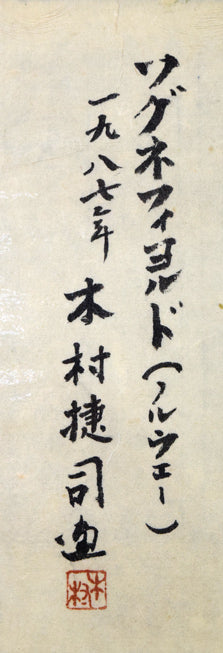 ソグネフィヨルド(ノルウェー)
一九八七年
木村捷司画
木村